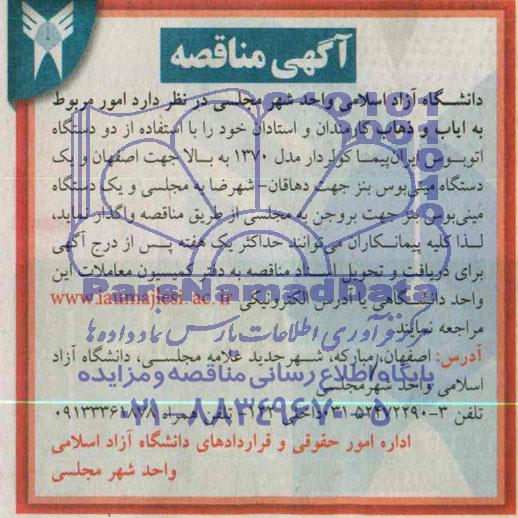 آگهی مناقصه
دانشگاه آزاد اسلامی واحد شهر مجلسی در نظر دارد امور مربوط
به ایاب و ذهاب کارمندان و استادان خود را با استفاده از دو دستگاه
اتوبوس ایران‌پیما کولردار مدل ۱۳۷۰ به بالا جهت اصفهان و یک
دستگاه مینی‌بوس بنز جهت دهاقان-شهرضا به مجلسی و یک دستگاه
مینی‌بوس بنز جهت بروجن به مجلسی از طریق مناقصه واگذار نماید،
لذا کلیه پیمانکاران می‌توانند حداکثر یک هفته پس از درج آگهی
برای دریافت و تحویل اسناد مناقصه به دفتر کمیسیون معاملات این
واحد دانشگاهی یا آدرس الکترونیکی www.iaumajlesi.ac.ir
مراجعه نمایند.
آدرس: اصفهان، مبارکه، شهرجدید علامه مجلسی، دانشگاه آزاد
اسلامی واحد شهرمجلسی
تلفن ۳-۵۲۴۷۲۲۹۰-۰۳۱ داخلی تلفن همراه
اداره امور حقوقی و قراردادهای دانشگاه آزاد اسلامی
واحد شهر مجلسی
ParsNamadData
مرکز فرآوری اطلاعات پارس نماد داده ها
پایگاه اطلاع رسانی مناقصه و مزایده
۰۲۱-۸۸۳۴۹۶۷۰-۵